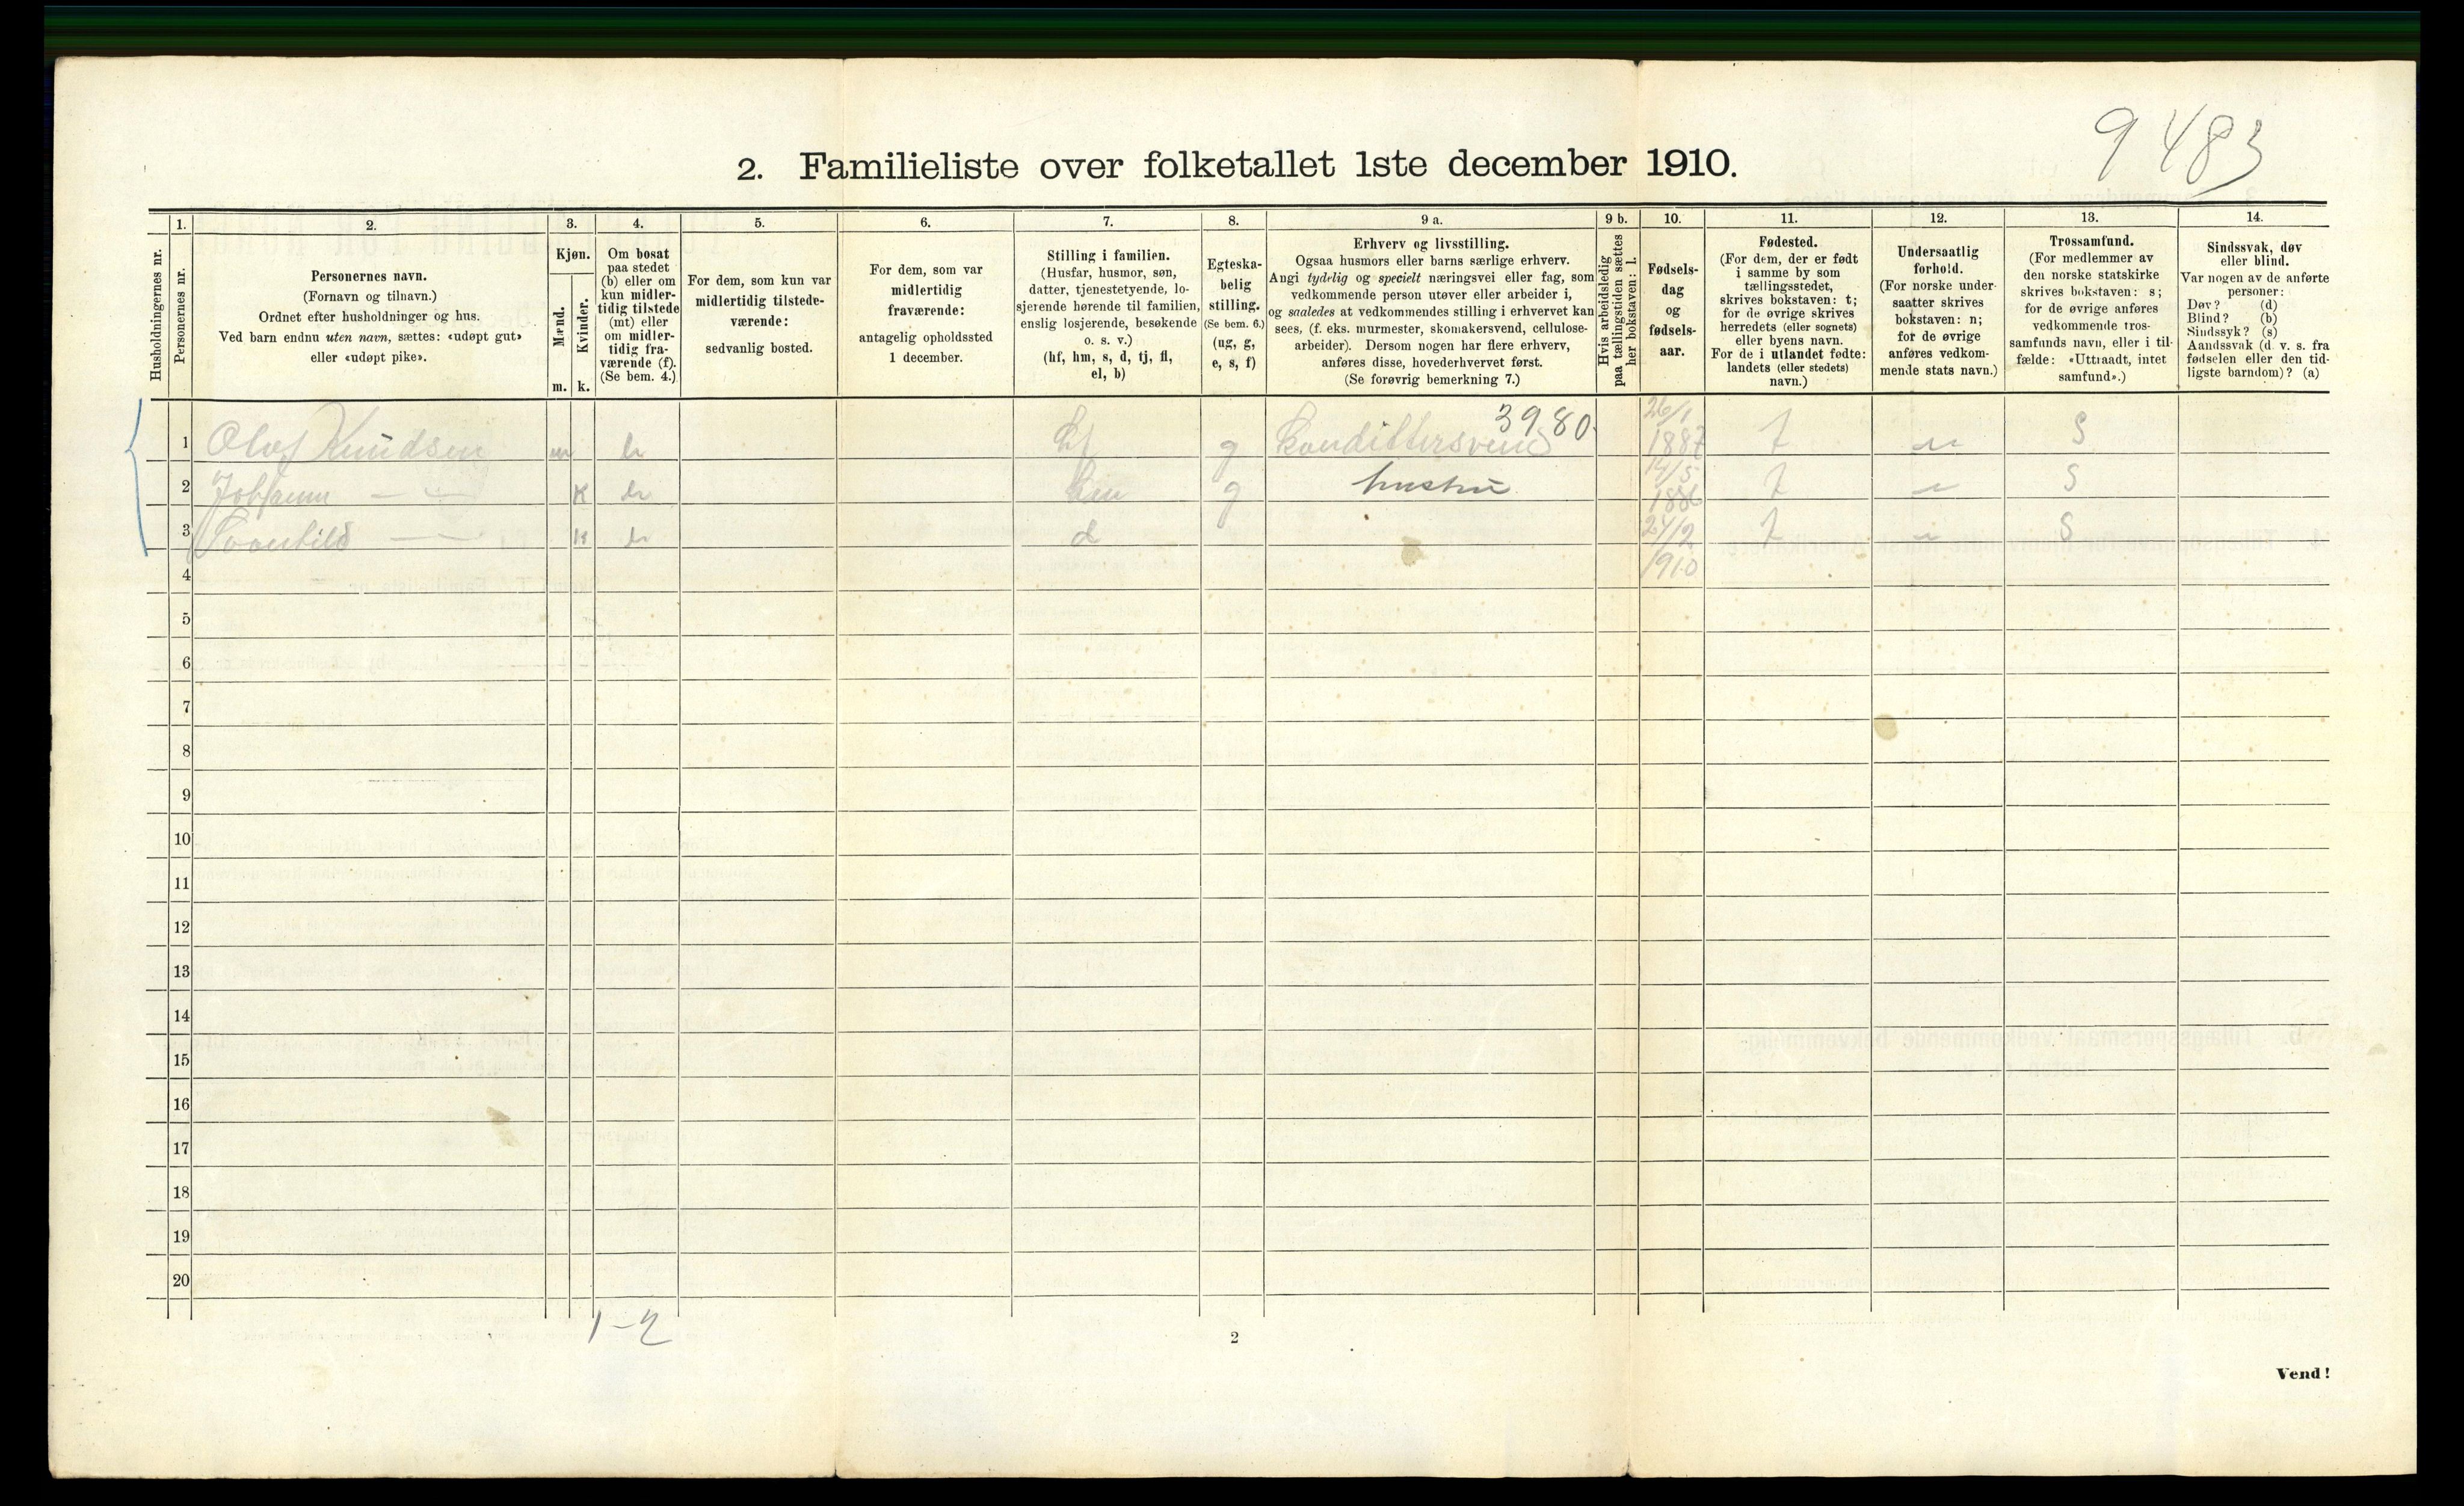 9483
2. Familieliste over folketallet 1ste december 1910.
Husholdningernes nr.
1.
Personernes nr.
2.
Personernes navn.
(Fornavn og tilnavn.)
Ordnet efter husholdninger og hus.
Ved barn endnu uten navn, sættes: «udøpt gut»
eller «udøpt pike».
3.
Kjøn.
Mænd.
m.
Kvinder.
k.
4.
Om bosat
paa stedet
(b) eller om
kun midler-
tidig tilstede
(mt) eller
om midler-
tidig fra-
værende (f).
(Se bem. 4.)
5.
For dem, som kun var
midlertidig tilstede-
værende:
sedvanlig bosted.
6.
For dem, som var
midlertidig
fraværende:
antagelig opholdssted
1 december.
7.
Stilling i familien.
(Husfar, husmor, søn,
datter, tjenestetyende, lo-
sjerende hørende til familien,
enslig losjerende, besøkende
o. s. v.)
(hf, hm, s, d, tj, fl,
el, b)
8.
Egteska-
belig
stilling.
(Se bem. 6.)
(ug, g,
e, s, f)
9 a.
Erhverv og livsstilling.
Ogsaa husmors eller barns særlige erhverv.
Angi tydelig og specielt næringsvei eller fag, som
vedkommende person utøver eller arbeider i,
og saaledes at vedkommendes stilling i erhvervet kan
sees, (f. eks. murmester, skomakersvend, cellulose-
arbeider). Dersom nogen har flere erhverv,
anføres disse, hovederhvervet først.
(Se forøvrig bemerkning 7.)
9 b.
Hvis arbeidsledig
paa tællingstiden sættes
her bokstaven: l.
10.
Fødsels-
dag
og
fødsels-
aar.
11.
Fødested.
(For dem, der er født
i samme by som
tællingsstedet,
skrives bokstaven: t;
for de øvrige skrives
herredets (eller sognets)
eller byens navn.
For de i utlandet fødte:
landets (eller stedets)
navn.)
12.
Undersaatlig
forhold.
(For norske under-
saatter skrives
bokstaven: n;
for de øvrige
anføres vedkom-
mende stats navn.)
13.
Trossamfund.
(For medlemmer av
den norske statskirke
skrives bokstaven: s;
for de øvrige anføres
vedkommende tros-
samfunds navn, eller i til-
fælde: «Uttraadt, intet
samfund».)
14.
Sindssvak, døv
eller blind.
Var nogen av de anførte
personer:
Døv? (d)
Blind? (b)
Sindssyk? (s)
Aandssvak (d. v. s. fra
fødselen eller den tid-
ligste barndom)? (a)
1 Olaf Knudsen m b hf g Kondittersvend 3980 26/1 1887 t n S
2 — — K b hm g hustru 14/5 1886 t n S
3 — — K b d 24/2 1910 t n S
4
5
6
7
8
9
10
11
12
13
14
15
16
17
18
19
20
1-2
2
Vend!